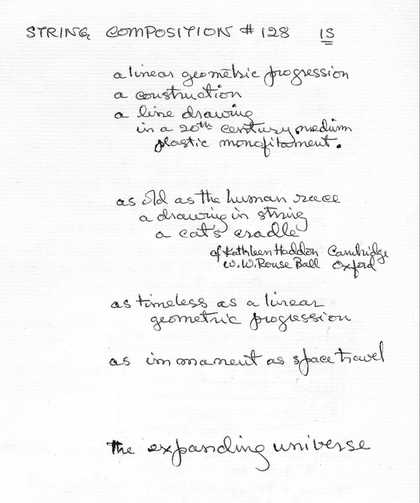 STRING COMPOSITION # 128 IS
a linear geometric progression
a construction
a line drawing
in a 20th century medium
plastic monofilament.
as old as the human race
a drawing in string
a cat's cradle
of Kathleen Haddon Cambridge
W.W. Rouse Ball Oxford
as timeless as a linear
geometric progression
as immanent as space travel
the expanding universe